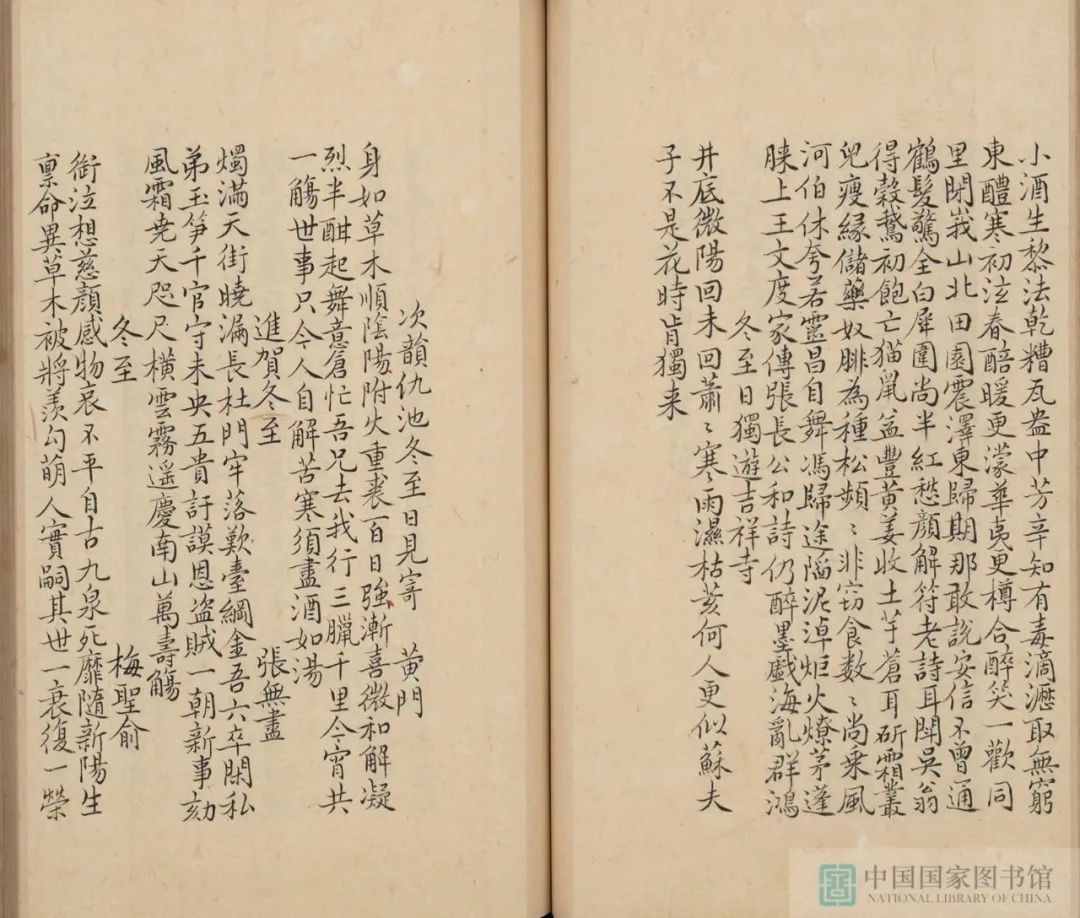 小酒生黎法乾糟瓦盎中芳辛知有毒滴瀝取無窮
東醴寒初泫春醅暖更濛華夷更樽合醉笑一歡同
里閈峩山北田園震澤東歸期那敢説安信不曾通
鶴髮驚全白犀圍尚半紅愁顔解符老詩耳鬪吳翁
得穀鵞初飽亡猫鼠益豐黄姜收土芋蒼耳斫霜叢
兒瘦縁儲藥奴腓為種松頻〻非窃食数〻尚乗風
河伯休夸若靈昌自舞馮歸途陷泥淖炬火燎茅蓬
膝上王文度家傳張長公和詩仍醉墨戯海亂群鴻
冬至日獨遊吉祥寺
井底微陽回未回蕭〻寒雨濕枯荄何人更似蘇夫
子不是花時肯獨来
次韻仇池冬至日見寄 黄門
身如草木順陰陽附火重裘百日強漸喜微和解凝
烈半酣起舞意倉忙吾兄去我行三臘千里今宵共
一觴世事只今人自解苦寒須盡酒如湯
進賀冬至 張無盡
燭滿天街曉漏長杜門牢落歎臺綱金吾六卒閑私
弟玉笋千官守未央五貴訏謨恩盗賊一朝新事劾
風霜尭天咫尺横雲霧遥慶南山萬壽觴
冬至 梅聖俞
銜泣想慈顔感物哀不平自古九泉死靡隨新陽生
禀命異草木被將羨勾萌人實嗣其世一衰復一榮
中国国家图书馆
NATIONAL LIBRARY OF CHINA